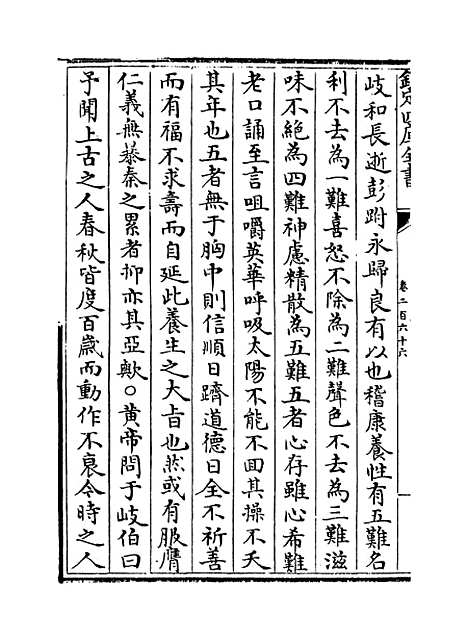 欽定四庫全書
卷二百六十六
岐和長逝彭跗永歸良有以也嵇康養性有五難名
利不去為一難喜怒不除為二難聲色不去為三難滋
味不絕為四難神慮精散為五難五者心存雖心希難
老口誦至言咀嚼英華呼吸太陽不能不囬其操不夭
其年也五者無于胸中則信順日躋道德日全不祈善
而有福不求壽而自延此養生之大旨也然或有服膺
仁義無㳟泰之累者抑亦其亞歟○黄帝問于岐伯曰
予聞上古之人春秋皆度百歲而動作不衰今時之人